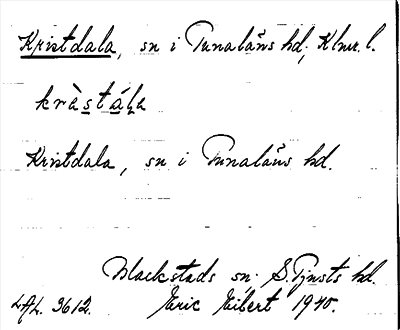 Kristdala, sn i Tunaläns hd, Klmr. l.
kràstála
Kristdala, sn i Tunaläns hd.
Blackstads sn. S. Tjusts hd.
LAL. 3612. Eric Elbert 1940.